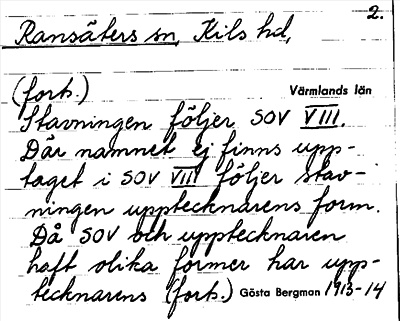 2.
Ransäters sn, Kils hd,
(forts.) Värmlands län
Stavningen följer SOV VIII.
Där namnet ej finns upp-
taget i SOV VIII följer stav-
ningen upptecknarens form.
Då SOV och upptecknaren
haft olika former har upp-
tecknarens (forts.) Gösta Bergman 1913-14